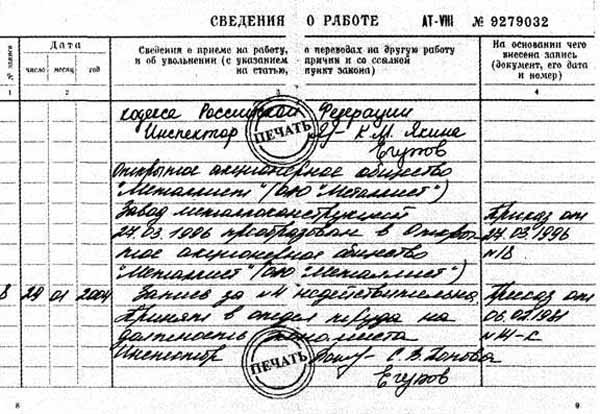 СВЕДЕНИЯ О РАБОТЕ АТ-VIII № 9279032
№ записи
Дата
число месяц год
Сведения о приеме на работу, о переводах на другую работу
и об увольнении (с указанием причин и со ссылкой
на статью, пункт закона)
На основании чего
внесена запись
(документ, его дата
и номер)
1 2 3 4
кодекса Российской Федерации
Инспектор К.М. Якина
ПЕЧАТЬ
Егузов
Открытое акционерное общество
"Металлист" (ОАО "Металлист")
Завод металлоконструкций Приказ от
27.03.1996 преобразован в Откры- 27.03.1996
тое акционерное общество
"Металлист" (ОАО "Металлист")
8 29 01 2004 Запись за недействительна, Приказ от
Принят в отдел труда на
должность экономиста
Инспектор С.В.
ПЕЧАТЬ
Егузов
8 9